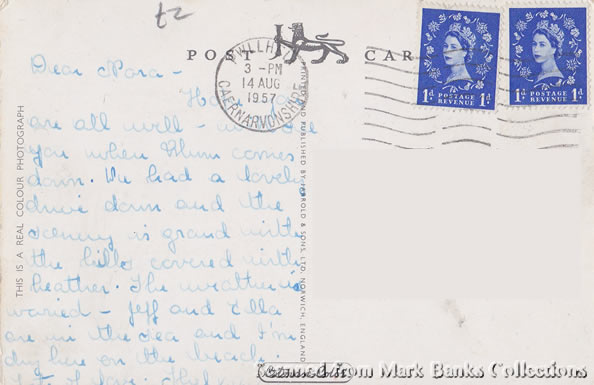 £2
POST CARD
PWLLHELI
3 - PM
14 AUG
1957
CAERNARVONSHIRE
1d POSTAGE REVENUE 1d
1d POSTAGE REVENUE 1d
THIS IS A REAL COLOUR PHOTOGRAPH
Dear Nora -
are all well - will see
you when Mum comes
down. We had a lovely
drive down and the
scenery is grand with
the hills covered with
heather. The weather is
varied - Jeff and Ella
are in the sea and I'm
here on the beach.
AND PUBLISHED BY JARROLD & SONS, LTD. NORWICH, ENGLAND
Scanned From Mark Banks Collections